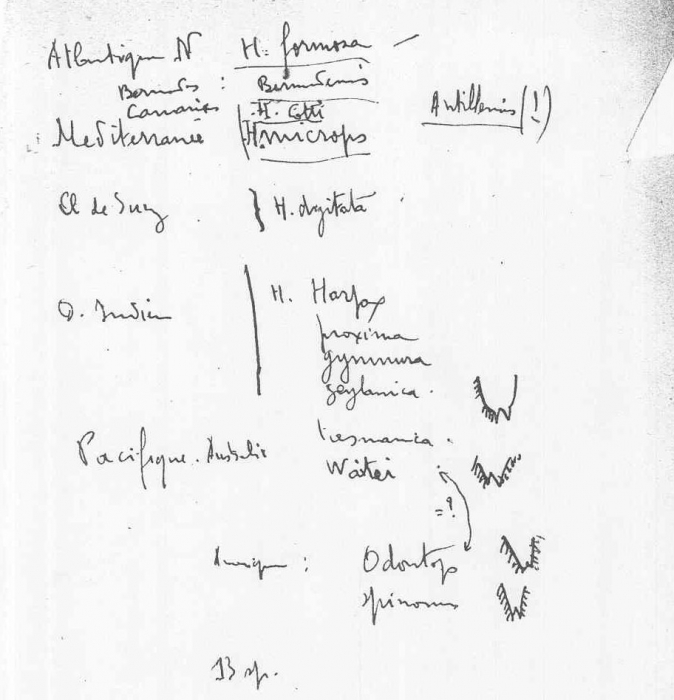 Atlantique N H. formosa –
Bermudes : Bermudensis
Canaries H. Cotti Antillensis (!)
Mediterranee H. microps
Cl de Suez } H. digitata
O. Indien H. Harpax
proxima
gymnura
zeylanica.
tasmanica.
Pacifique. Australie Waitei
=?
Amerique : Odontops
spinosus
13 sp.